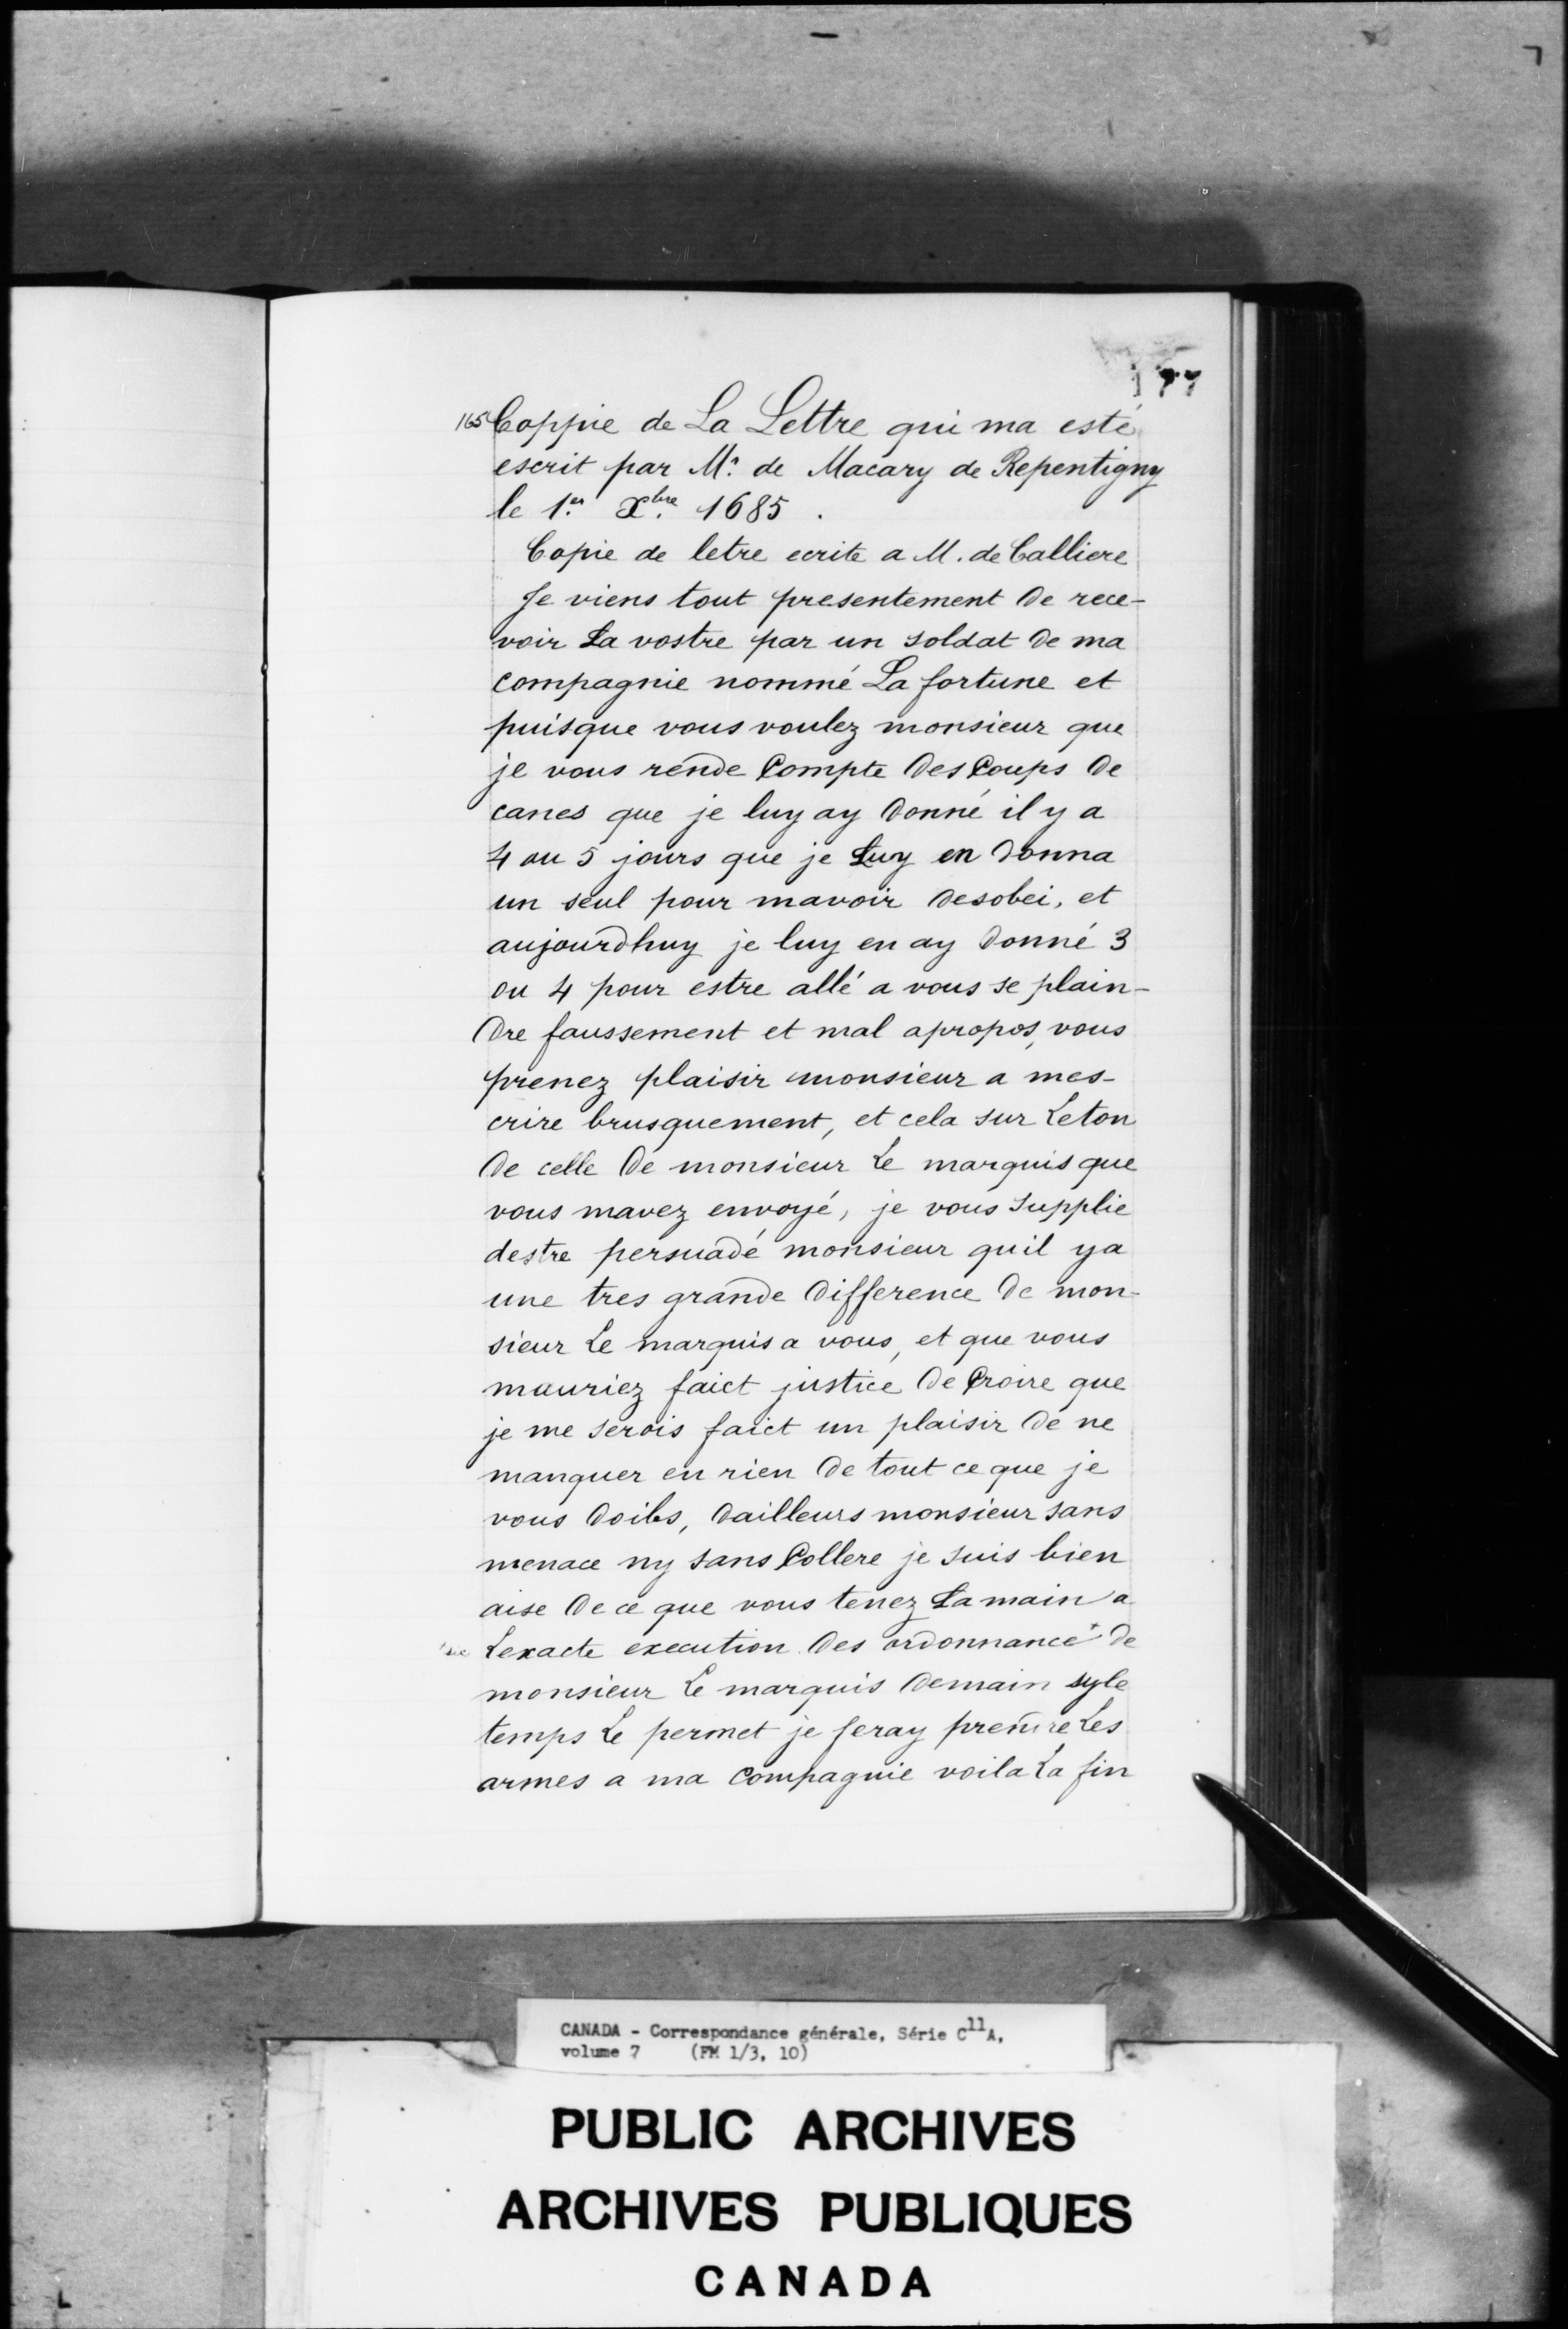 177
165 Coppie de La Lettre qui ma esté
escrit par Mr. de Macary de Repentigny
le 1.er Xbre. 1685.
Copie de letre ecrite a M. de Calliere
Je viens tout presentement de rece-
voir La vostre par un soldat de ma
compagnie nommé La fortune et
puisque vous voulez monsieur que
je vous rende Compte des Coups de
canes que je luy ay donné il y a
4 ou 5 jours que je Luy en donna
un seul pour mavoir desobei, et
aujourdhuy je luy en ay donné 3
ou 4 pour estre allé a vous se plain-
dre faussement et mal apropos, vous
prenez plaisir monsieur a mes-
crire brusquement, et cela sur Le ton
de celle de monsieur Le marquis que
vous mavez envoyé, je vous supplie
destre persuadé monsieur quil ya
une tres grande difference de mon-
sieur Le marquis a vous, et que vous
mauriez faict justice de Croire que
je me serois faict un plaisir de ne
manquer en rien de tout ce que je
vous doibs, dailleurs monsieur sans
menace ny sans Collere je suis bien
aise de ce que vous tenez La main a
Lexacte execution des ordonnance+ de
monsieur Le marquis demain syle
temps Le permet je feray prendre Les
armes a ma Compagnie voila La fin
CANADA - Correspondance générale, Série C11A,
volume 7 (FM 1/3, 10)
PUBLIC ARCHIVES
ARCHIVES PUBLIQUES
CANADA